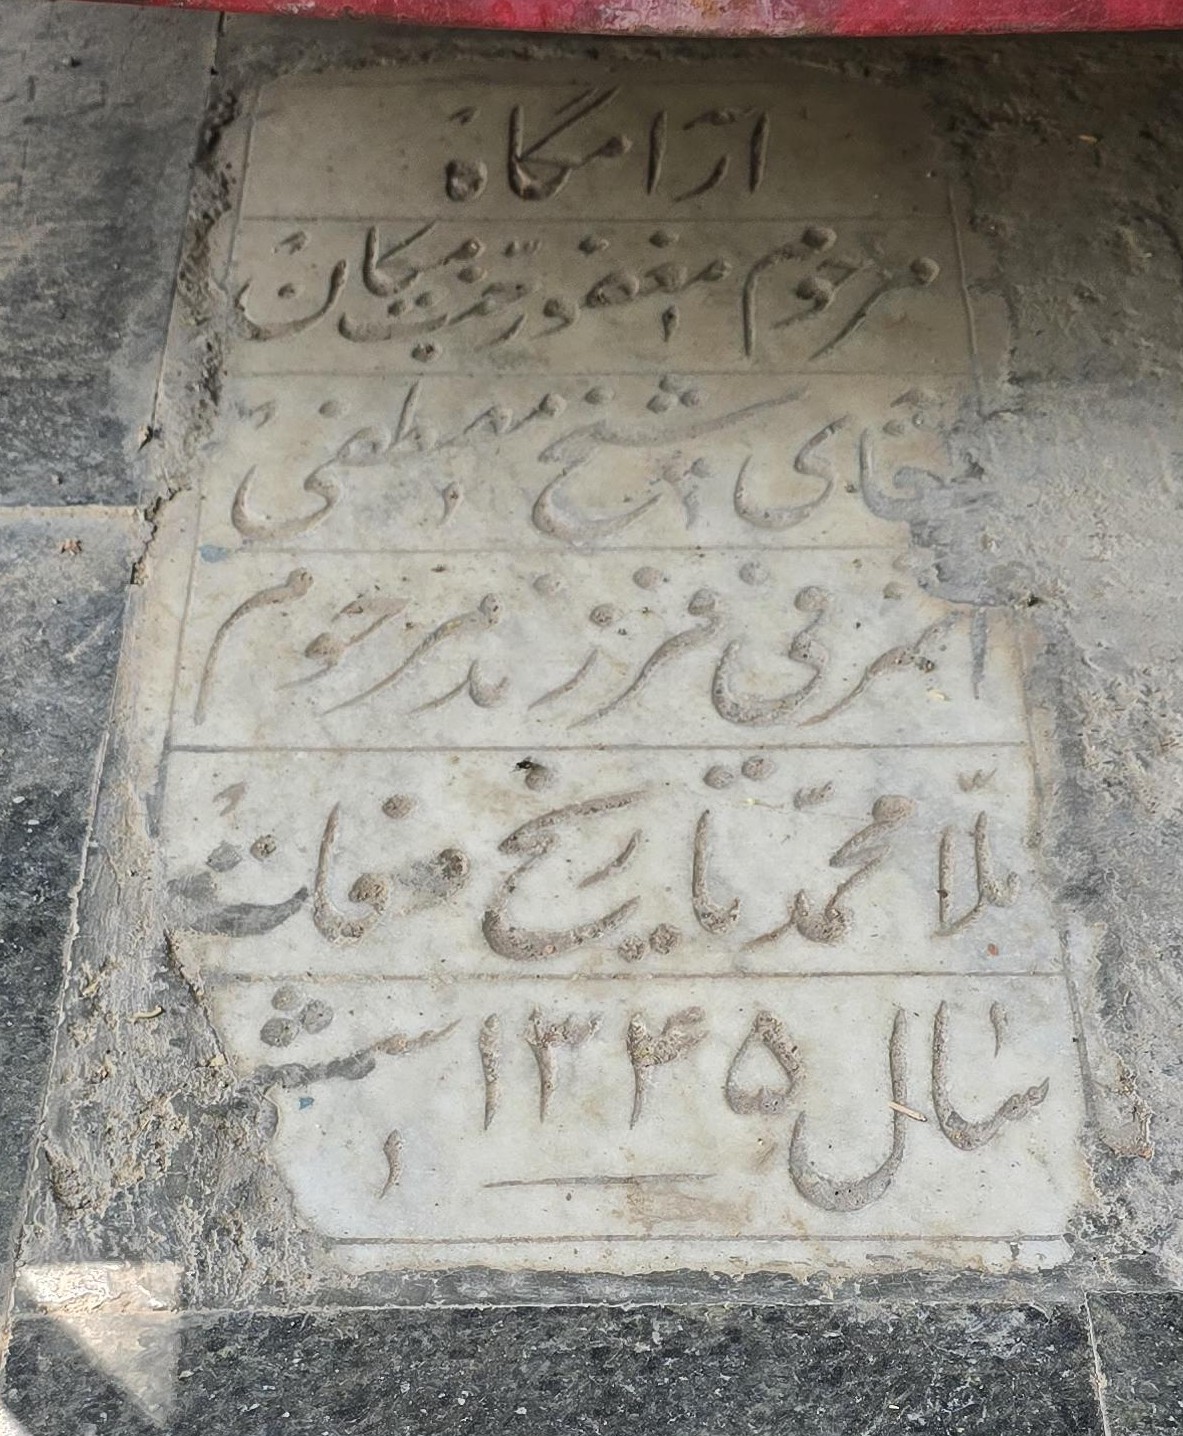 آرامگاه
مرحوم مغفور جنت مکان
آقای شیخ مصطفی
اشرفی فرزند مرحوم
ملّا محمّد تاریخ وفات
سال ۱۳۴۵ ش